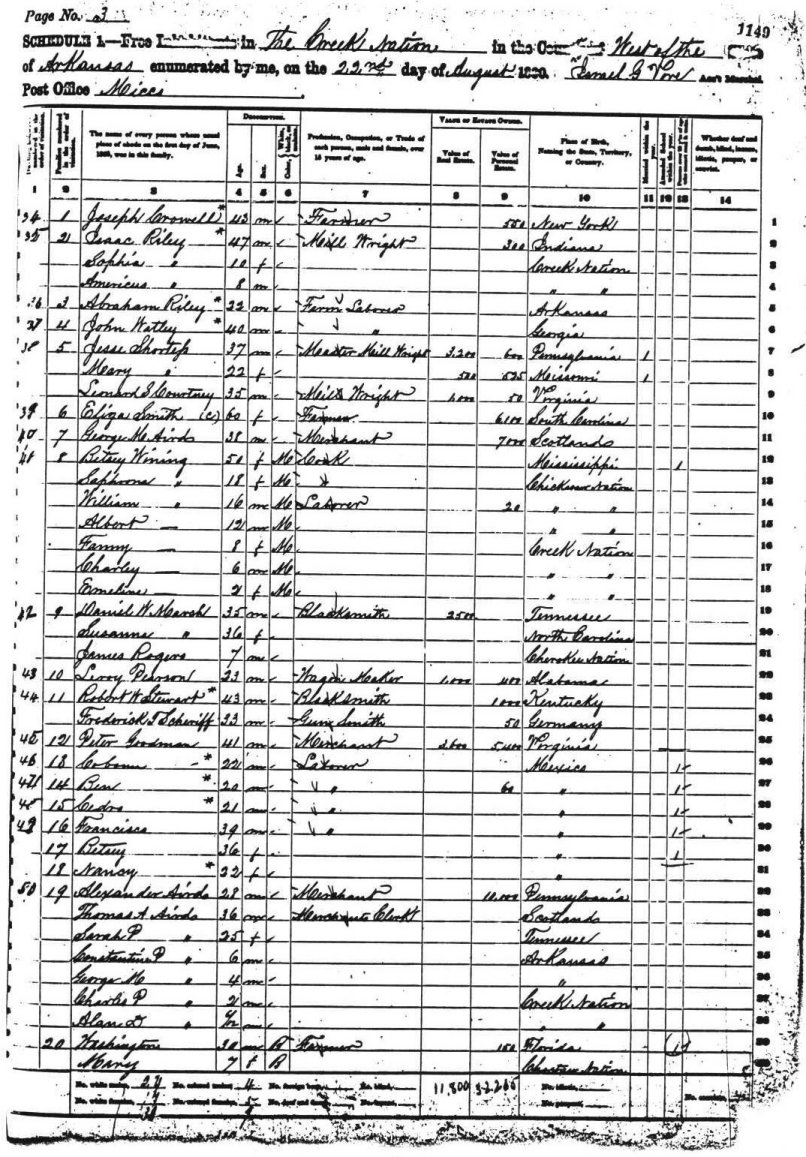 Page No. 3
1149
SCHEDULE 1.—Free in The Creek Nation in the West of the
of Arkansas enumerated by me, on the 22nd day of August 1860. Israel G Vore Ass't Marshal.
Post Office Micco
DESCRIPTION. VALUE OF ESTATE OWNED.
The name of every person whose usual place of abode on the first day of June, 1860, was in this family. Age. Sex. Profession, Occupation, or Trade of each person, male and female, over 15 years of age. Value of Real Estate. Value of Personal Estate. Place of Birth, Naming the State, Territory, or Country. Married within the year. Whether deaf and dumb, blind, insane, idiotic, pauper, or convict.
1 2 3 4 5 6 7 8 9 10 11 12 13 14
34 1 Joseph Crowell * 43 m Farmer 550 New York 1
35 2 Isaac Riley * 47 m Mill Wright 300 Indiana 2
Sophia " 10 f Creek Nation 3
Americus " 8 m " " 4
36 3 Abraham Riley * 22 m Farm Laborer Arkansas 5
37 4 John Watley * 40 m " Georgia 6
38 5 Jesse 37 m Master Mill Wright 3,200 600 Pennsylvania 1 7
Mary " 22 f 500 525 Missouri 1 8
Leonard S Courtney 35 m Mill Wright 50 Virginia 9
39 6 Eliza Smith (c) 60 f Farmer 6100 South Carolina 10
40 7 George M Airds 38 m Merchant 7000 Scotland 11
41 8 Betsey Wining 50 f M Cook Mississippi 1 12
Saphrona " 18 f M " Chickasaw Nation 13
William " 16 m M Laborer 20 " " 14
Albert — 12 m M " " 15
Fanny — 8 f M Creek Nation 16
Charley — 6 m M " " 17
Emeline — 2 f M " " 18
42 9 Daniel W. Marsh 35 m Blacksmith 2500 Tennessee 19
Susanna " 36 f North Carolina 20
James Rogers 7 m Cherokee Nation 21
43 10 Leroy Pearson 23 m Wagon Maker 1,000 400 Alabama 22
44 11 Robert W Stewart * 43 m Blacksmith 1000 Kentucky 23
Frederick Scheriff 33 m Gun Smith 50 Germany 24
45 12 Peter Goodman 41 m Merchant 2600 5,400 Virginia 25
46 13 * 22 m Laborer Mexico 1 26
47 14 Ben * 20 m " 60 " 1 27
48 15 Cedro * 21 m " " 1 28
49 16 Francisco 39 m " " 1 29
17 Betsey 36 f " 1 30
18 Nancy * 22 f " 31
50 19 Alexander Airds 28 m Merchant 10,000 Pennsylvania 32
Thomas A Airds 36 m Merchants Clerk Scotland 33
Sarah P " 25 f Tennessee 34
Constantine P " 6 m Arkansas 35
George M " 4 m " 36
Charles P " 2 m Creek Nation 37
Alan D " m " " 38
20 Washington 30 m B Farmer 150 Florida 1 39
Mary 7 f B Choctaw Nation 40
No. white males, 27 No. colored males, 4 No. foreign born, No. blind, 11,800 32265 No. idiotic, No. convicts,
No. white females, No. colored females, 5 No. deaf and dumb,